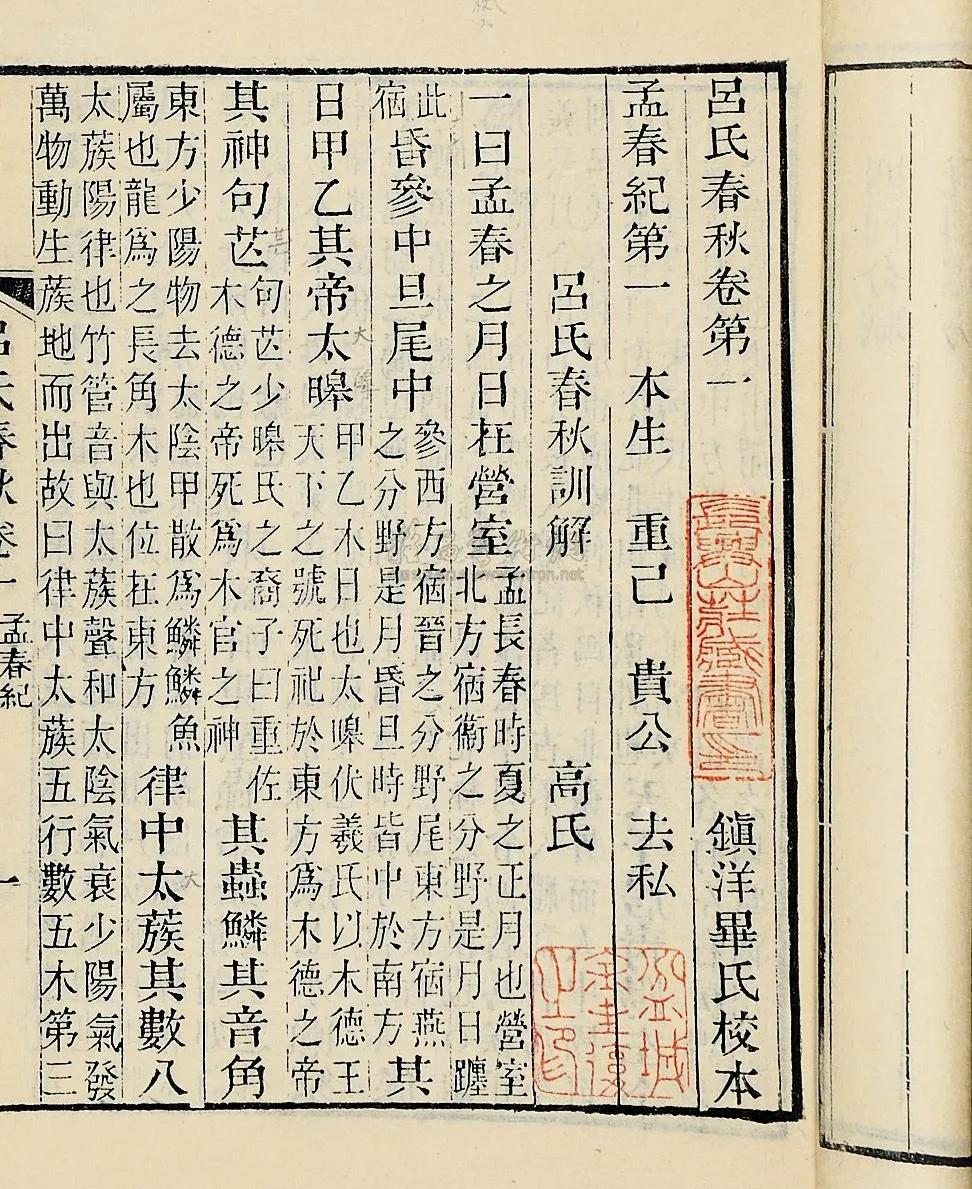 呂氏春秋卷第一 鎮洋畢氏校本
孟春紀第一 本生 重己 貴公 去私
呂氏春秋訓解 高氏
一曰孟春之月日在營室孟長春時夏之正月也營室北方宿衞之分野是月日躔
此宿昏參中旦尾中參西方宿晉之分野尾東方宿燕之分野是月昏旦時皆中於南方其
日甲乙其帝太皞甲乙木日也太皞伏羲氏以木德王天下之號死祀於東方爲木德之帝
其神句芒句芒少皞氏之裔子曰重佐木德之帝死爲木官之神其蟲鱗其音角
東方少陽物去太陰甲散爲鱗鱗魚屬也龍爲之長角木也位在東方律中太蔟其數八
太蔟陽律也竹管音與太蔟聲和太陰氣衰少陽氣發萬物動生蔟地而出故曰律中太蔟五行數五木第三
呂氏春秋卷一 孟春紀 一